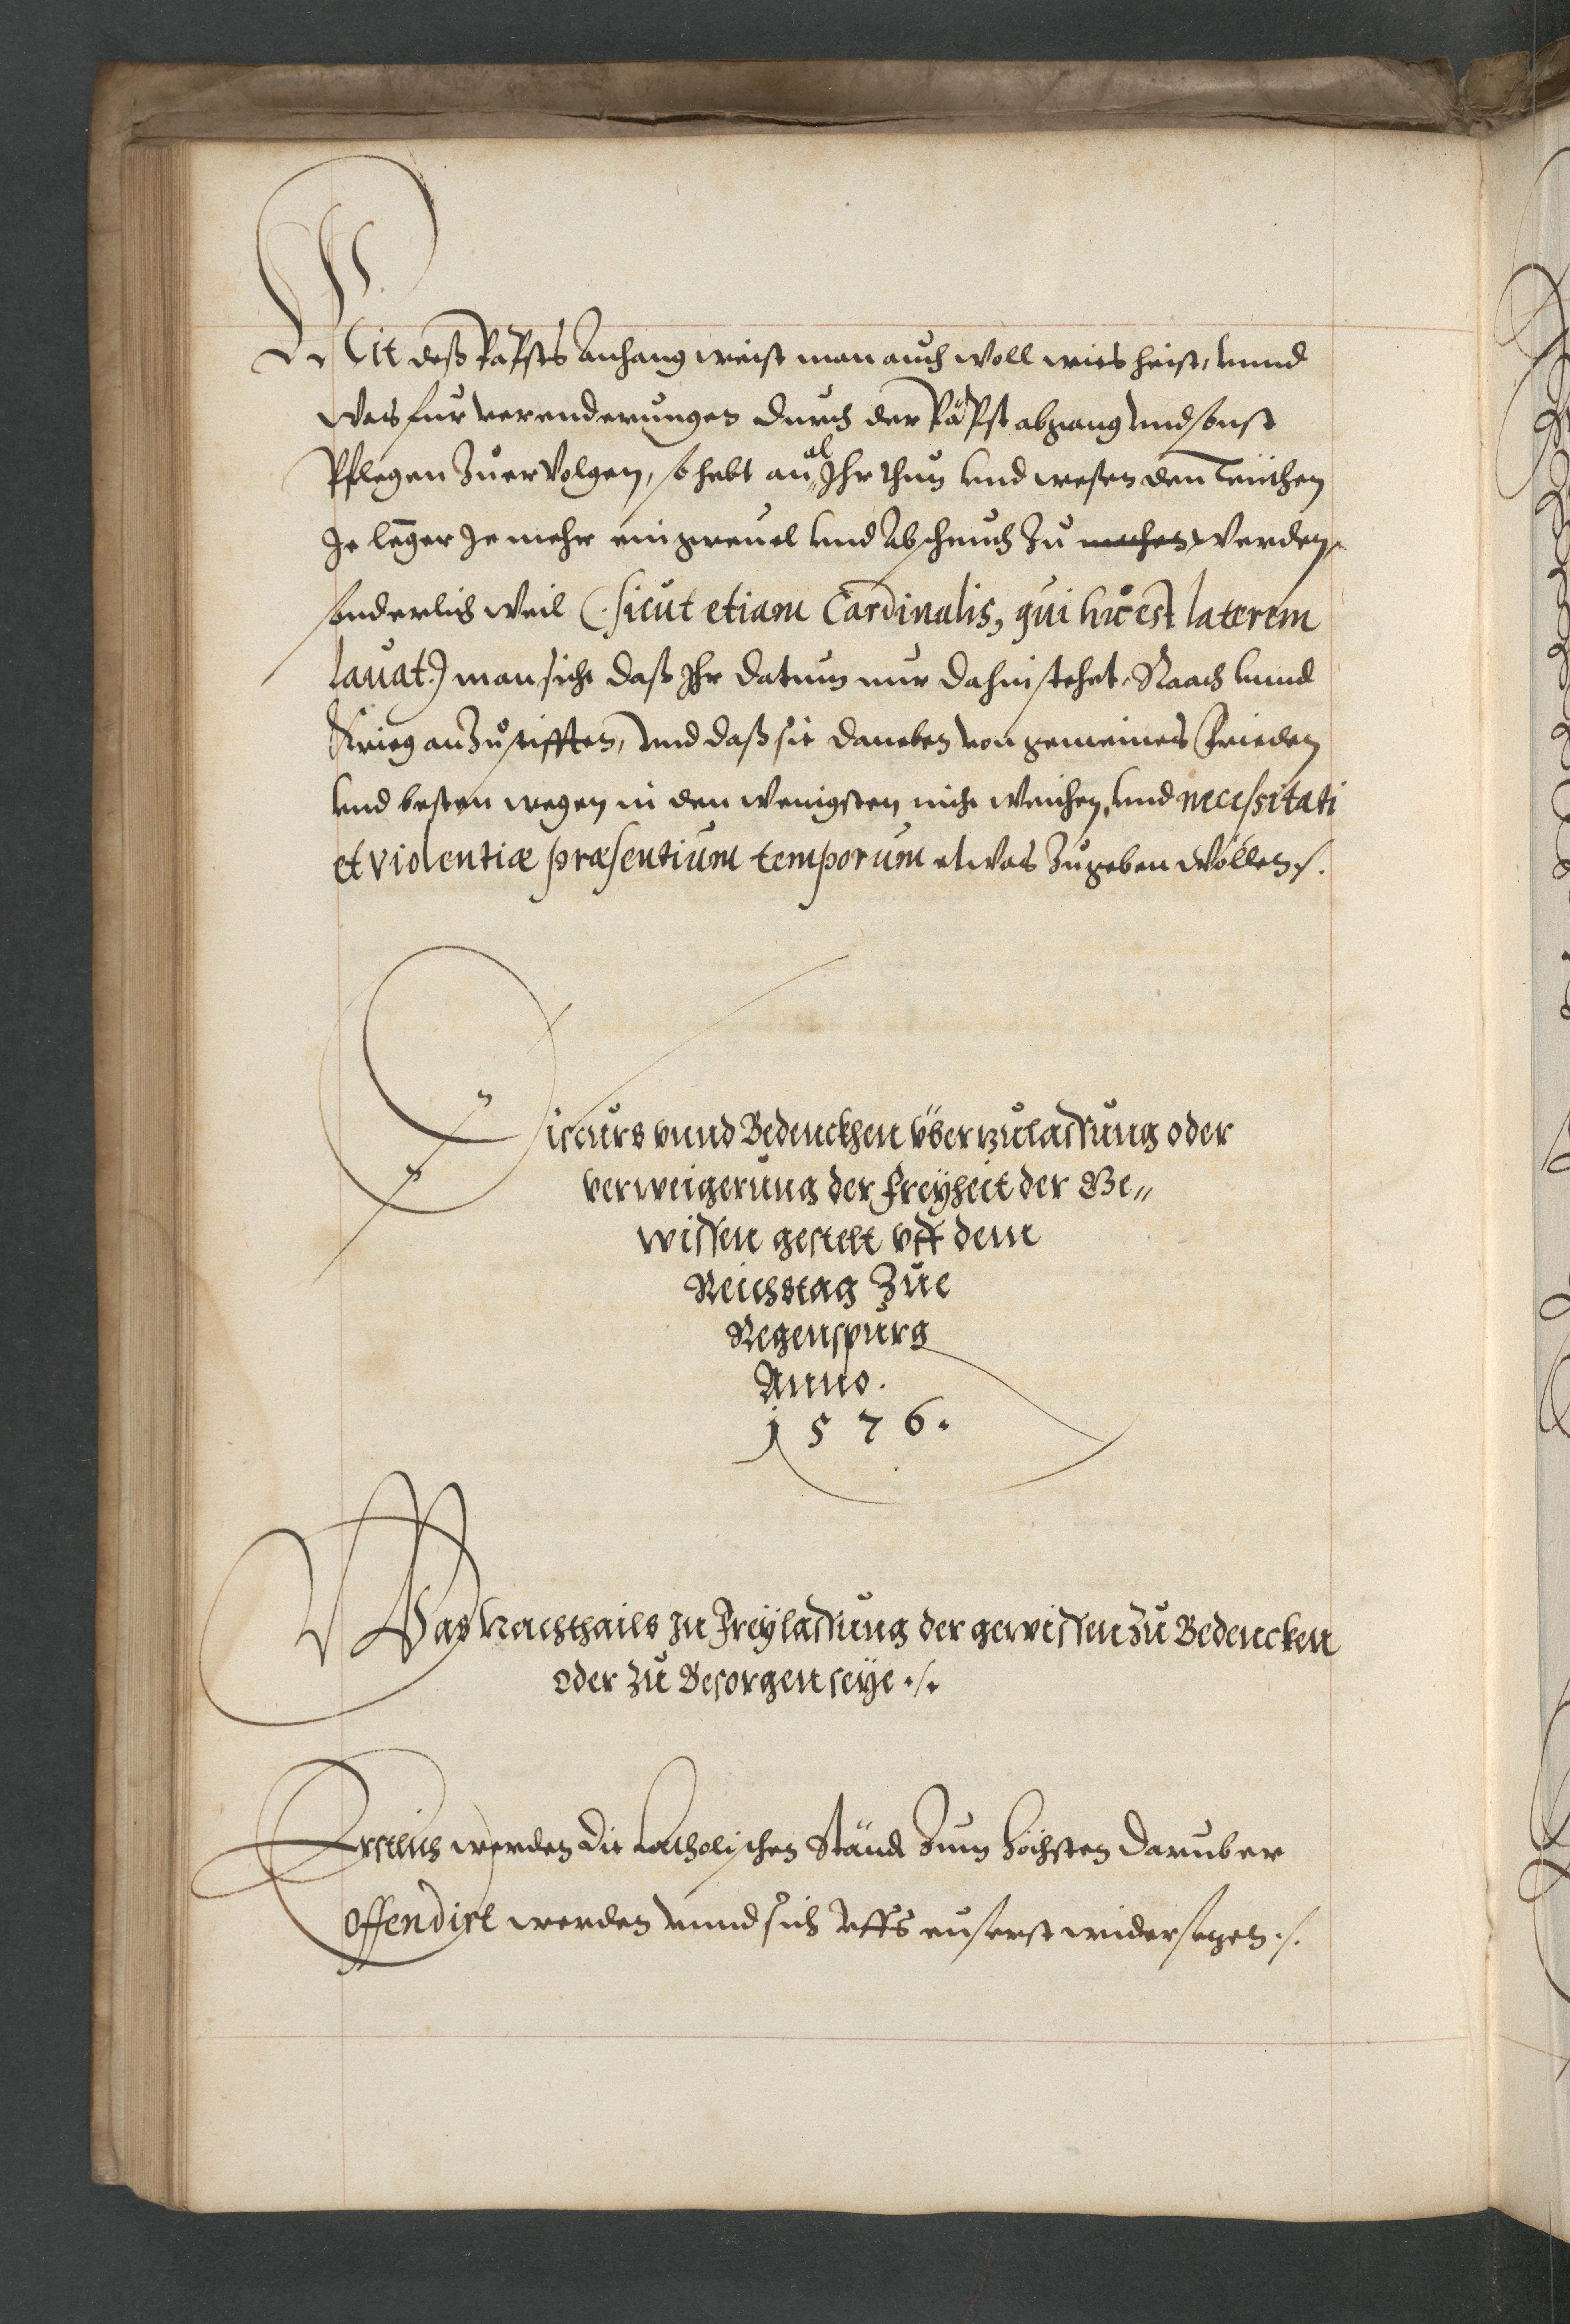 Mit deß Papsts Anhang weist man auch woll wies heist, vnnd
was fur verenderungen durch der Päpst abgang vnd sonst
Pflegen Zuervolgen, so hebt an al Ihr thun vnd wesen den Teutschen
Je lenger Je mehr ein greuel vnd Abscheuch Zu machen werden,
sonderlich weil (sicut etiam Cardinalis, qui hic est laterem
lauat.) man sicht daß Ihr datum nur dahin stehet, Raach vnnd
Krieg anZustifften, vnd daß sie daneben von gemeines Frieden
vnd besten wegen in den wenigsten nicht weichen, vnd necessitati
et violentiæ præsentium temporum etwas Zugeben wöllen.
Discurs vnnd Bedenckhen vber zulassung oder
verweigerung der freyheit der Ge„
wissen gestelt vff dem
Reichstag Zue
Regenspurg
Anno.
1576.
Was Nachthails In Freylassung der gewissen zu Bedencken
oder zu Besorgen seye ./.
Erstlich werden die Catholischen Ständ Zum höchsten daruber
offendirt werden vnnd sich vffs euserst widersezen ./.